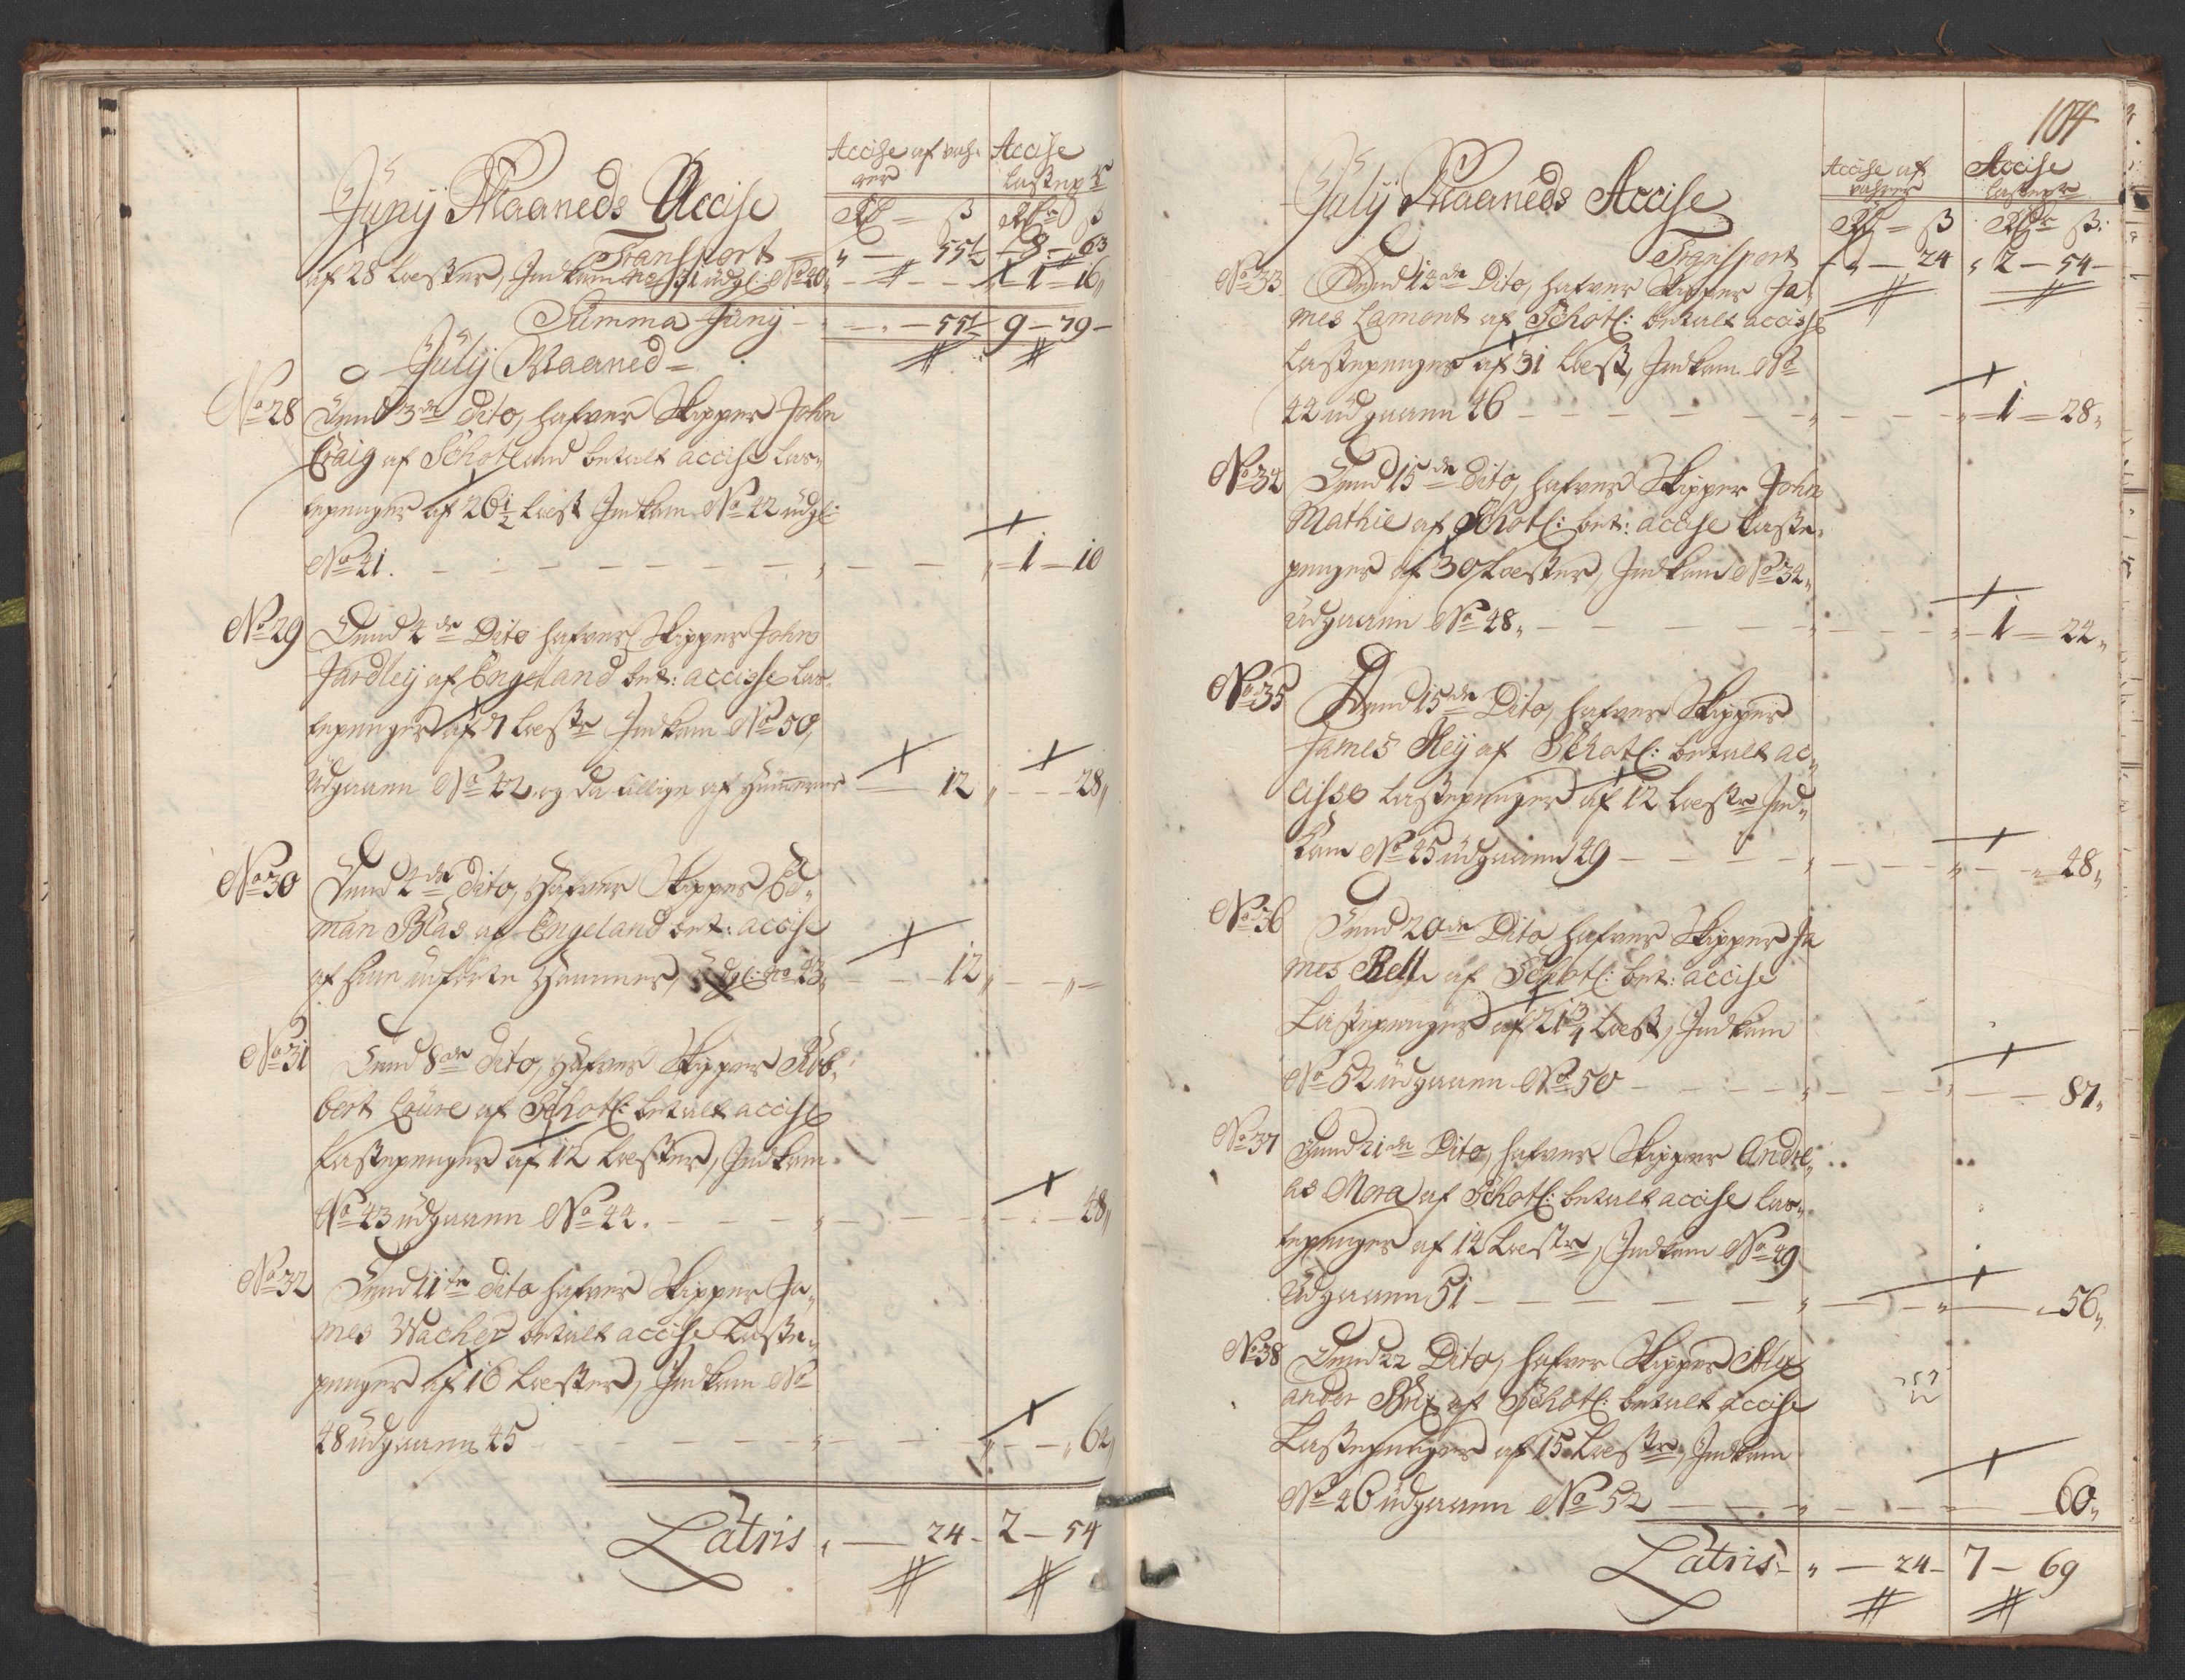 Junij Maaneds Accise
Accise af vah-
rer
Accise
Lastep
Rd – ß
Rdr ß
Transport – „ – 55½ 8 – 63
af 28 Læster, Indkom no 31 udgl: No 40 „ – – – 1 – 16„
Summa Junij – – 55½ 9 – 79 –
Julij Maaned –
No 28 Dend 3de Dito, hafver Skipper John
Craig af Schotland betalt accise Las„
tepenger af 26½ Læst Indkom No 42 udgl:
No 41. – – – „ – – „ – 1 – 10
No 29 Dend 4de Dito hafver Skipper John
Jardley af Engeland bet: accisse Las„
tepenger af 7 Læstr Indkom No 50,
udgaaen No 42, og da tillige af Hummer – 12 „ – 28„
No 30 Dend 4de Dito, Hafver Skipper Ed„
man Blas af Engeland bet: accise
af Hummer, udgl: No 43„ – – 12„ – „ –
No 31 Dend 8de Dito, Hafver Skipper Rob„
bert af Schotl: betalt accise
Lastepenger af 12 Læster, Indkom
No 43 udgaaen No 44. – – – „ – – „ – 48„
No 32 Dend 11te Dito hafver Skipper Ja„
mes Wacher betalt accise Laste„
penger af 16 Læster, Indkom No
48 udgaaen 45 – – – „ – – „ – „ 62„
Latris „ – 24 – 2 – 54
104
Julij Maaneds Accise
Accise af
vahrer
Accise
Lastepr
Rd – ß
Rdr ß:
Transport – „ – 24 „ 2 – 54 –
No 33 Dend 12de Dito, hafver Skipper Ja„
mes Lamont af Schotl: betalt accisse
Lastepenger af 31 Læst, Indkom No
44 udgaaen 46 – – – „ – – „ – 1 – 28„
No 34 Dend 15de Dito, hafver Skipper John
Mathie af Schotl: bet: accise Laste„
penger af 30 Læster, Indkom No 34„
udgaaen No 48„ – – – – „ – 1 – 24„
No 35 Dend 15de Dito, hafver Skipper
James Hey af Schotl: betalt ac„
cisse Lastepenger af 12 Læstr Ind„
kom No 45 udgaaen 49 – – – „ – – „ – „ 48„
No 36 Dend 20de Dito hafver Skipper Ja
mes Bell af Schotl: bet: accise
Lastepenger af 21¾ Læst, Indkom
No 52 udgaaen No 50 – – – „ – – „ – – 87„
No 37 Dend 21de Dito, hafver Skipper Andre„
as Mora af Schotl: betalt accise Las„
tepenger af 14 Læstr, Indkom No 49
udgaaen 51 – – – „ – – „ – „ 56„
No 38 Dend 22 Dito, hafver Skipper Alex
ander af Schotl: betalt accise
Lastepenger af 15 Læstr, Indkom
No 46 udgaaen No 52 – – – „ – – – 60„
Latris – „ – 24 – 7 – 69